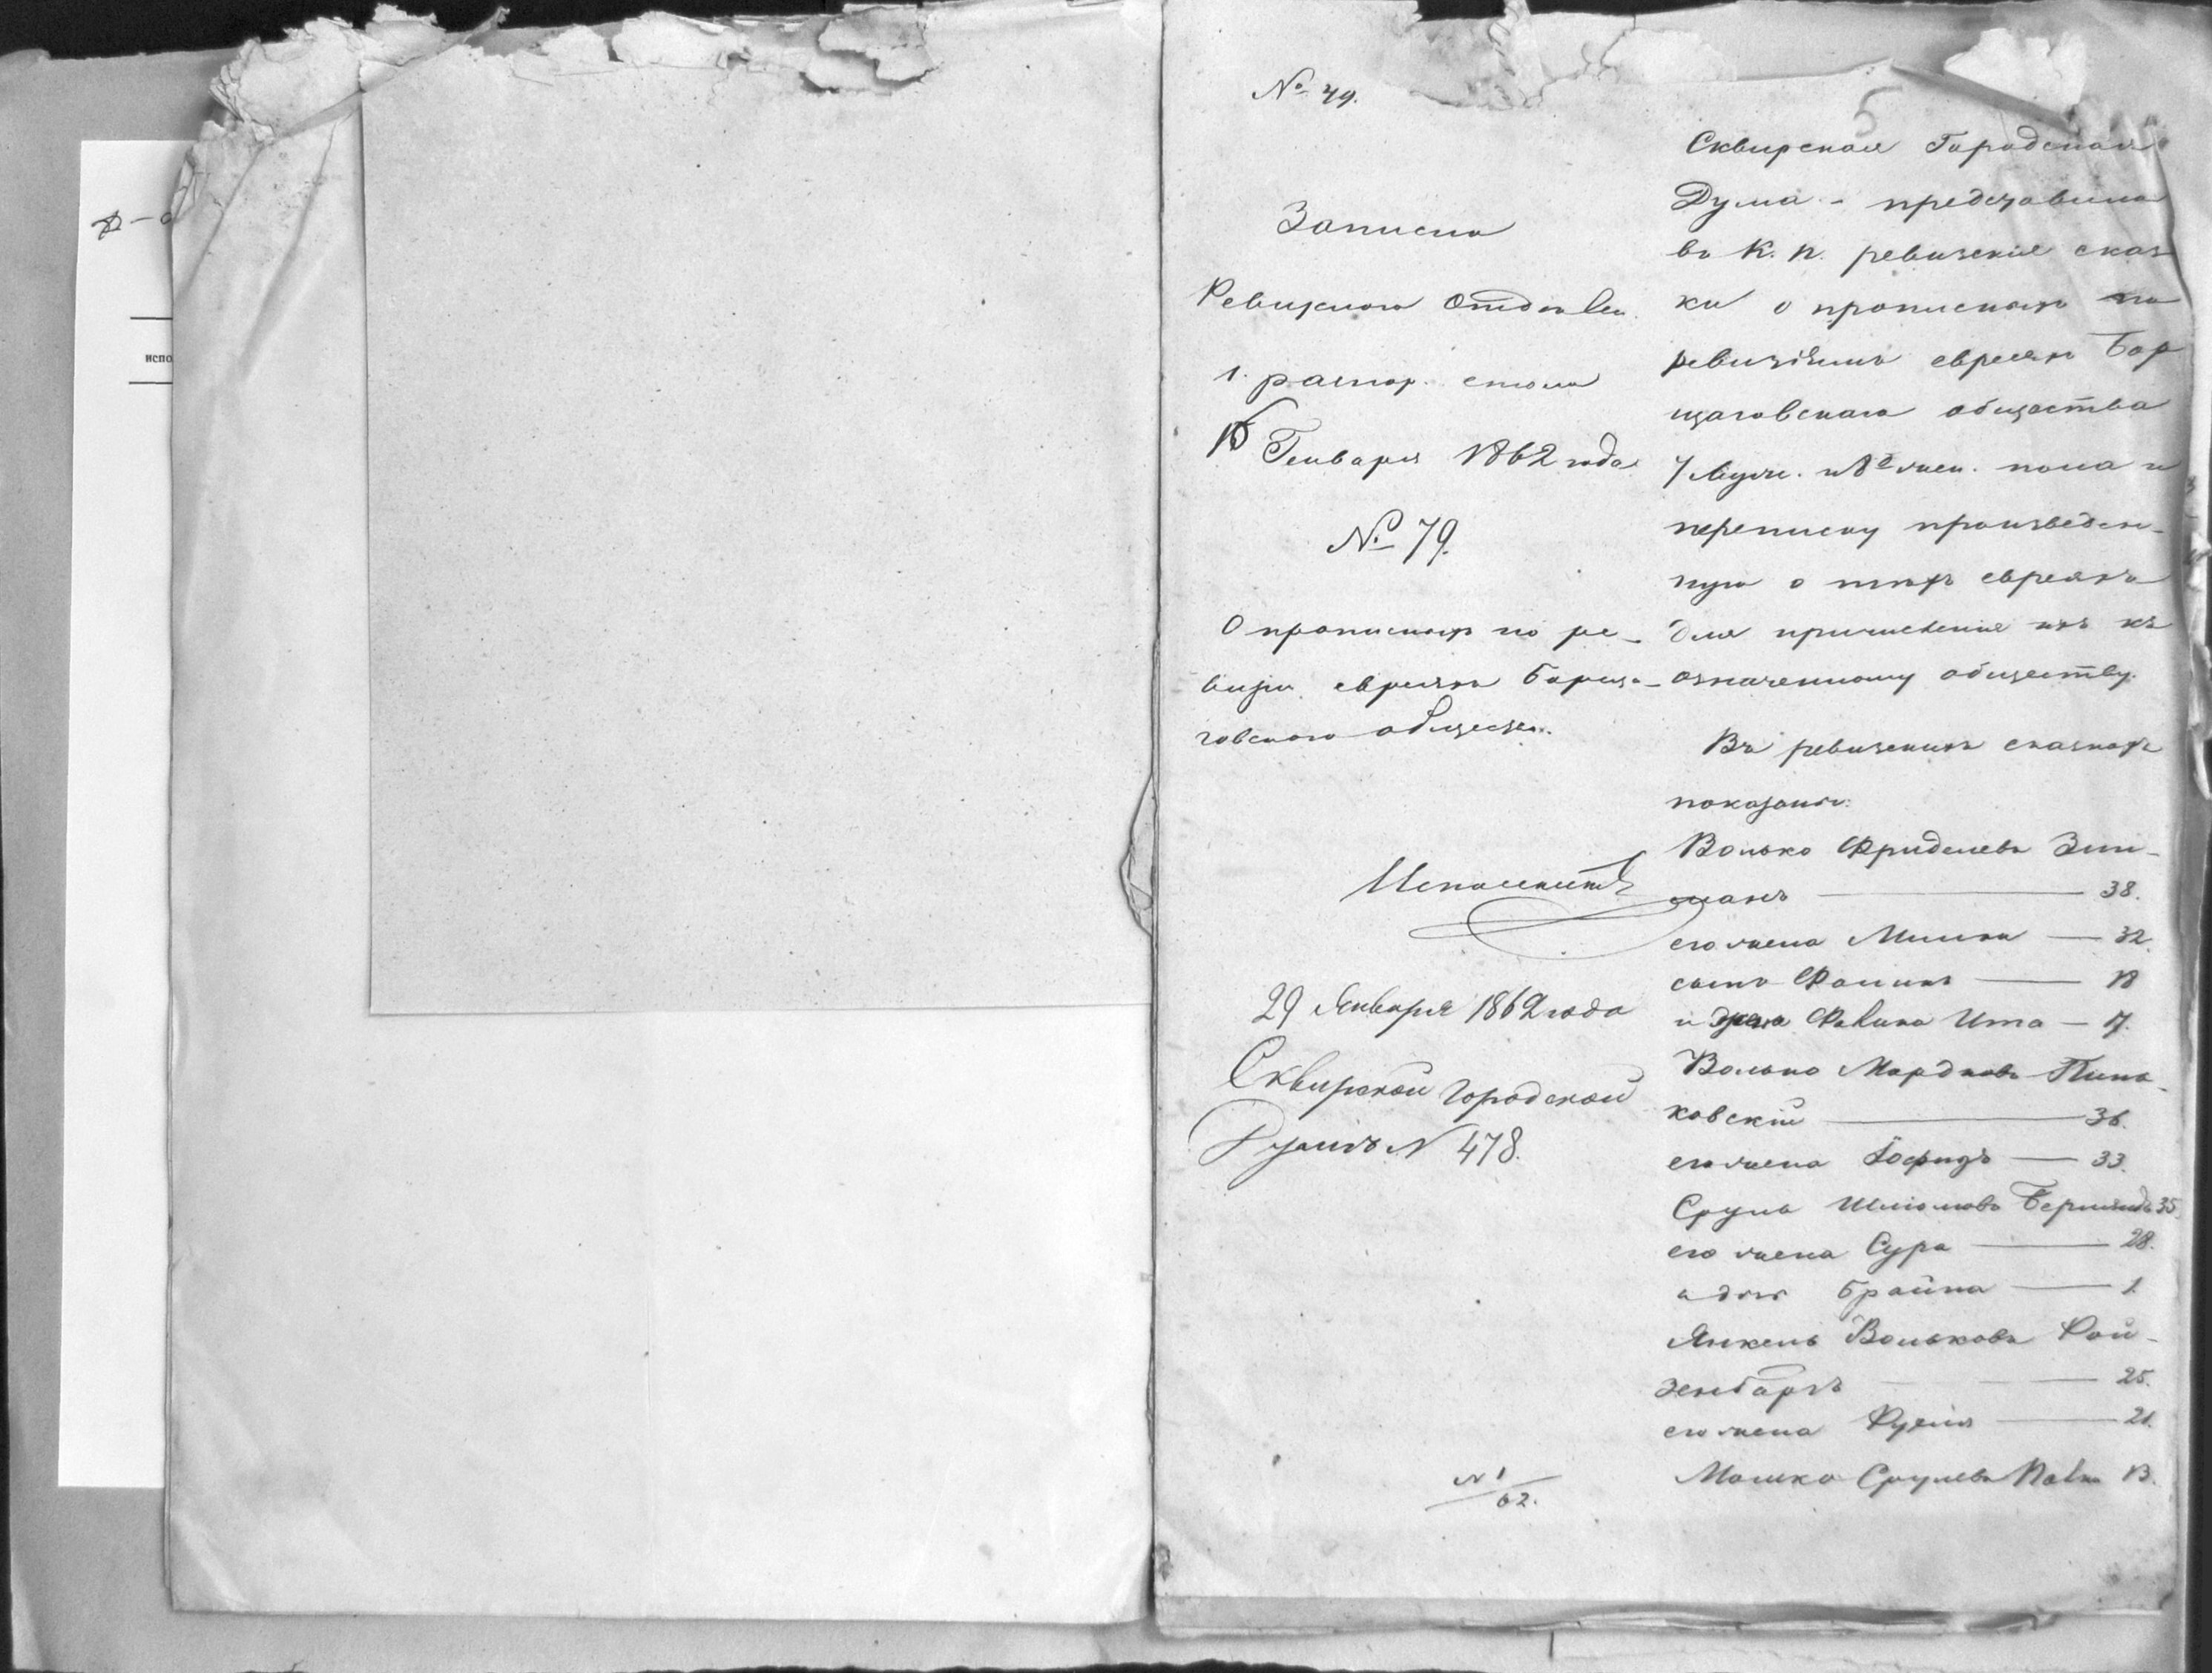 № 79.
Записка
Ревизского Отделен.
1. распор. стола
Генваря 1862 года
№ 79.
О прописныхъ по ре-
визіи евреяхъ Борща-
говскаго обществ.
29 Января 1862 года
Сквирской городской
Думѣ № 478.
№ 1
62.
5
Сквирская Городская
Дума - представила
въ К. П. ревизскія сказ
ки о прописныхъ по
ревизіямъ евреяхъ Бор
щаговскаго общества
7 муж. и 8 жен. пола и
переписку произведен-
ную о тѣхъ евреяхъ
для причисленія ихъ къ
означенному обществу.
Въ ревизскихъ сказкахъ
показаны:
Волько Фриделевъ
манъ — 38.
его жена — 32.
сынъ — 18
и жена Ита — 17.
Волько Мордковъ
ковскій — 36.
его жена — 33.
Сруль Шліомовъ 35.
его жена Сура — 28.
а дочь Брайна — 1
Янкель Вольковъ Рой-
зенбаргъ — 25.
его жена — 21.
Мошко Срулевъ 13.
испо